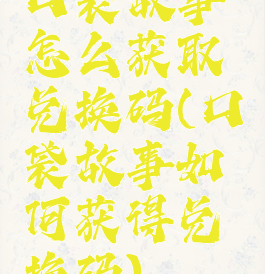 口袋故事
怎么获取
兑换码(口
袋故事如
何获得兑
换码)